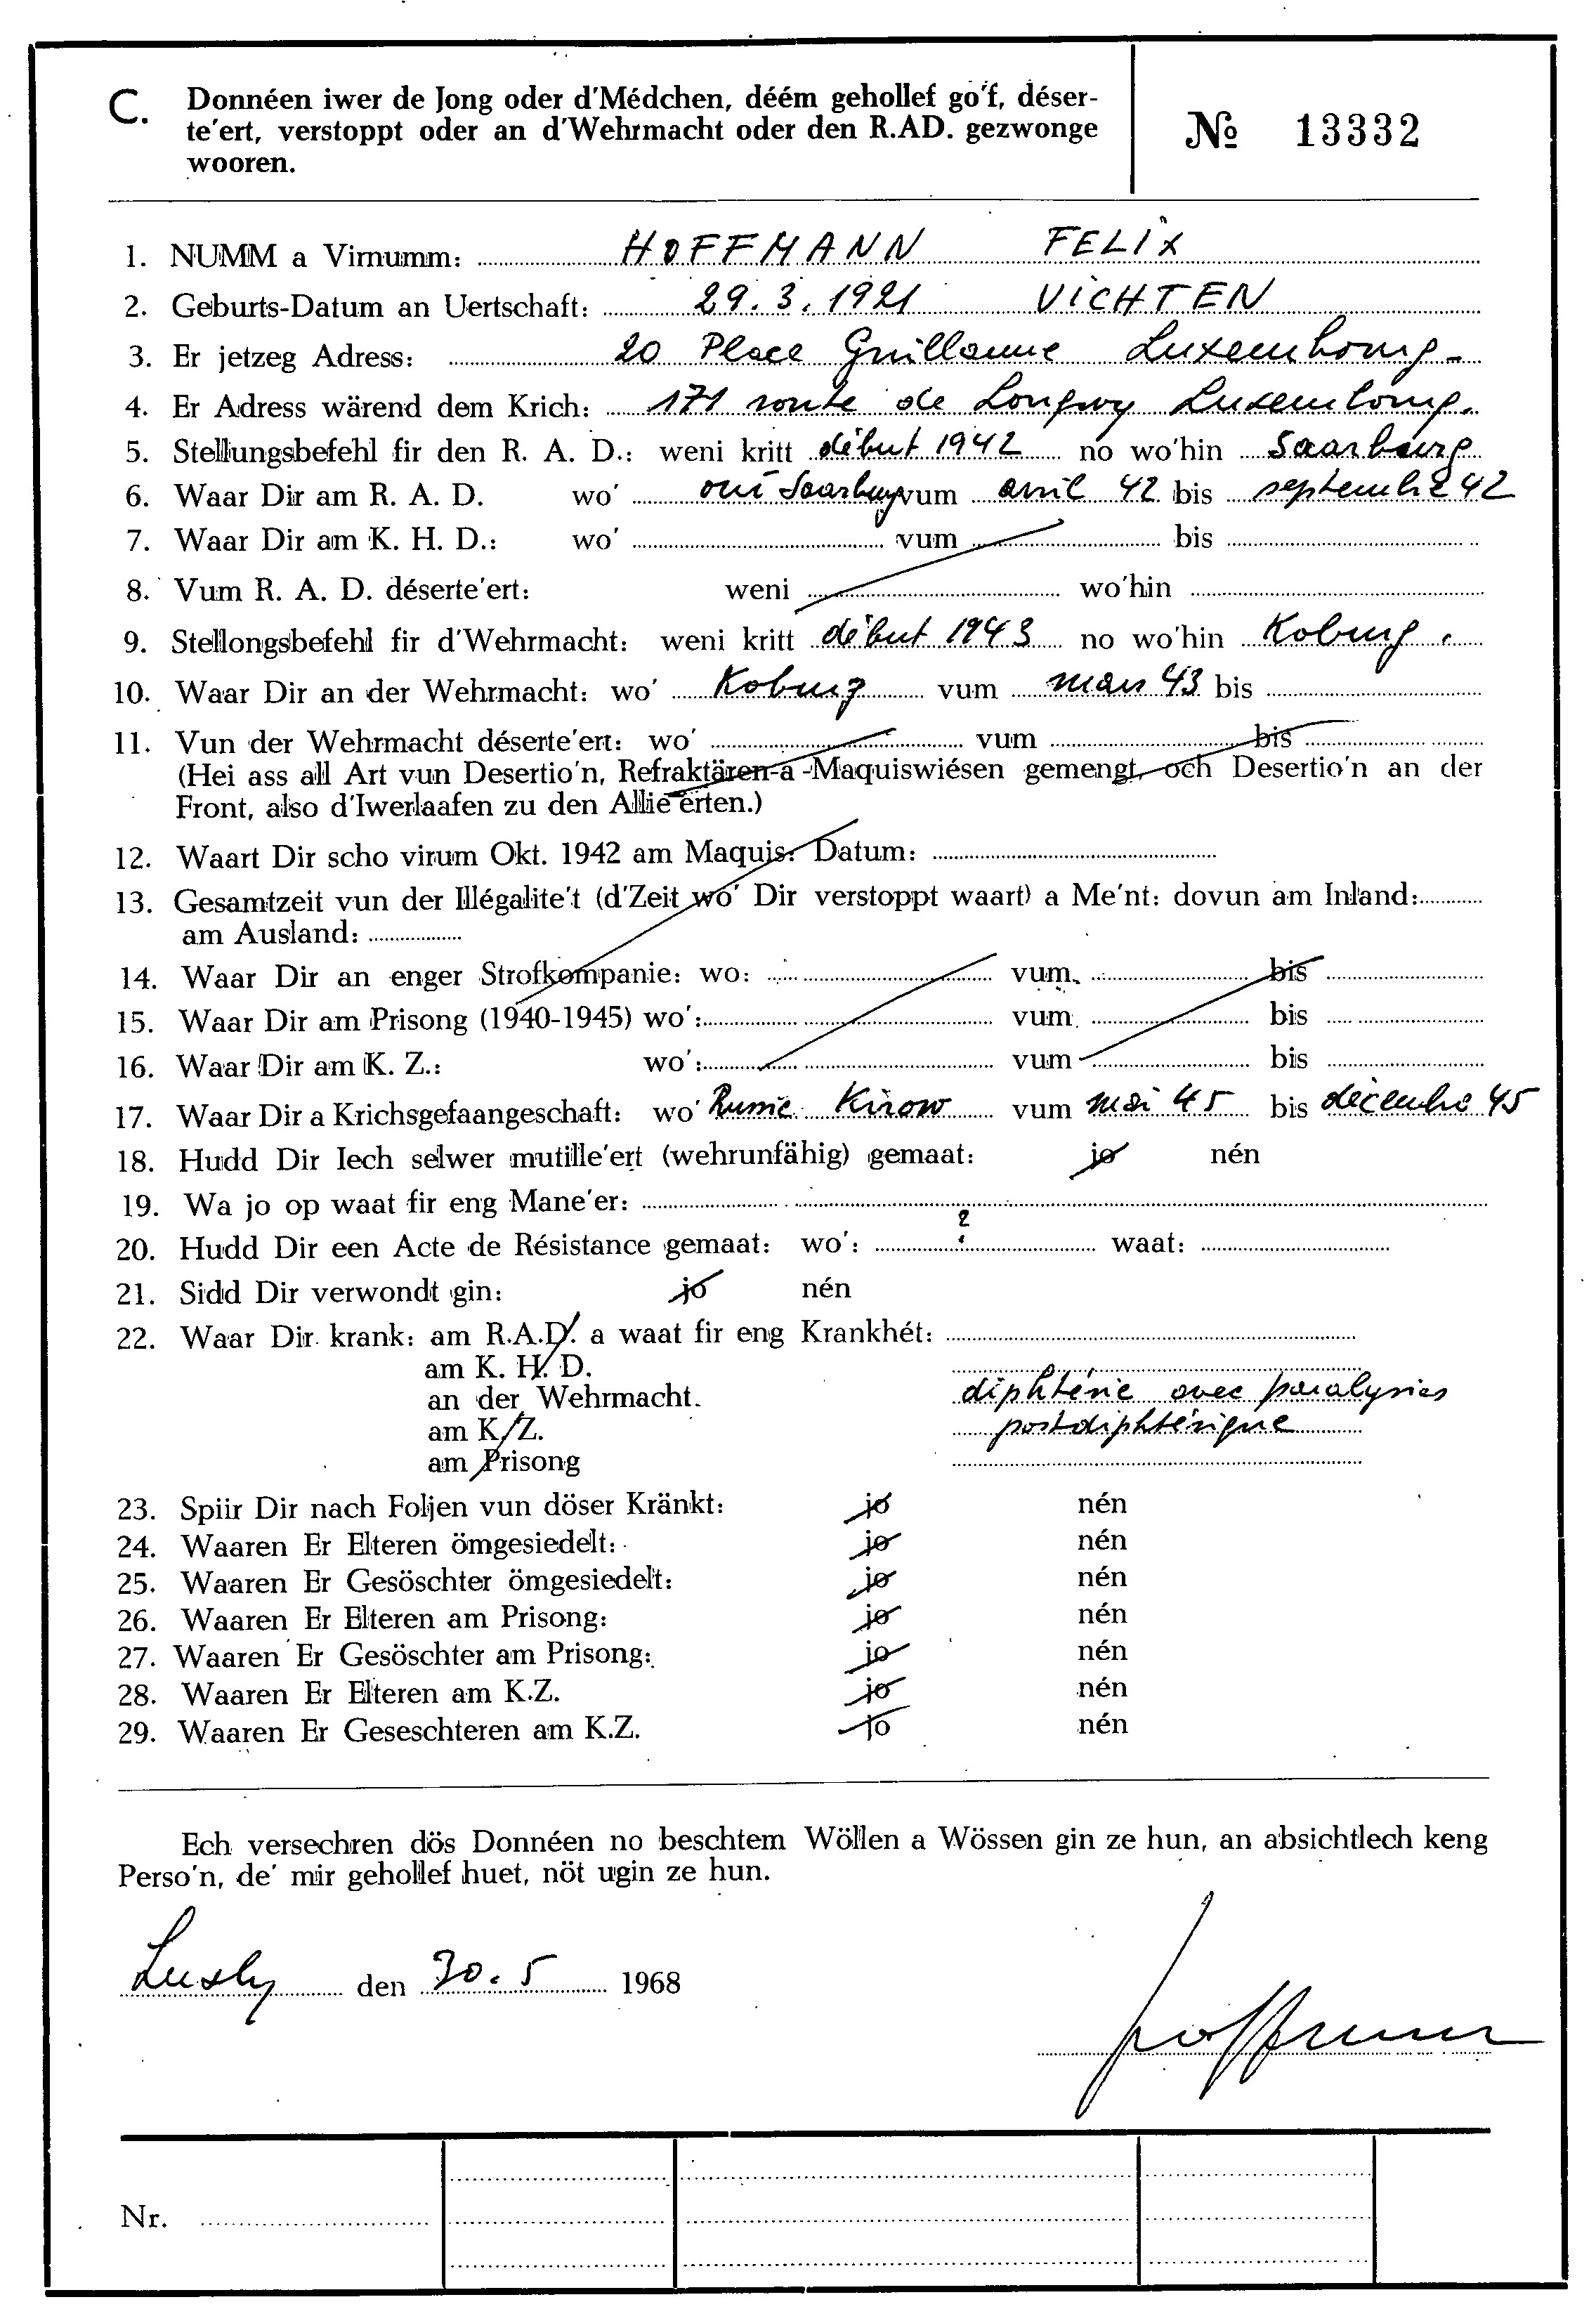 C. Donnéen iwer de Jong oder d'Médchen, déém gehollef go'f, déser-
te'ert, verstoppt oder an d'Wehrmacht oder den R.AD. gezwonge
wooren.
№ 13332
1. NUMM a Virnumm: HOFFMANN FELIX
2. Geburts-Datum an Uertschaft: 29.3.1921 VICHTEN
3. Er jetzeg Adress: 20 Place Guillaume Luxembourg.
4. Er Adress wärend dem Krich: 171 route de Longwy Luxembourg.
5. Stellungsbefehl fir den R. A. D.: weni kritt début 1942 no wo'hin Saarburg
6. Waar Dir am R. A. D. wo' oui Saarburg vum avril 42 bis septembre 42
7. Waar Dir am K. H. D.: wo' vum bis
8. Vum R. A. D. déserte'ert: weni wo'hin
9. Stellongsbefehl fir d'Wehrmacht: weni kritt début 1943 no wo'hin Koburg.
10. Waar Dir an der Wehrmacht: wo' Koburg vum mars 43 bis
11. Vun der Wehrmacht déserte'ert: wo' vum bis
(Hei ass all Art vun Desertio'n, Refraktären-a-Maquiswiésen gemengt, och Desertio'n an der
Front, also d'Iwerlaafen zu den Allie'erten.)
12. Waart Dir scho virum Okt. 1942 am Maquis: Datum:
13. Gesamtzeit vun der Illégalite't (d'Zeit wo' Dir verstoppt waart) a Me'nt: dovun am Inland:
am Ausland:
14. Waar Dir an enger Strofkompanie: wo: vum bis
15. Waar Dir am Prisong (1940-1945) wo': vum bis
16. Waar Dir am K. Z.: wo': vum bis
17. Waar Dir a Krichsgefaangeschaft: wo' Russie Kirow vum mai 45 bis décembre 45
18. Hudd Dir Iech selwer mutille'ert (wehrunfähig) gemaat: jo nén
19. Wa jo op waat fir eng Mane'er:
20. Hudd Dir een Acte de Résistance gemaat: wo': ? waat:
21. Sidd Dir verwondt gin: jo nén
22. Waar Dir krank: am R.A.D. a waat fir eng Krankhét:
am K. H. D.
an der Wehrmacht. diphtérie avec paralysies
am K.Z. postdiphtérique
am Prisong
23. Spiir Dir nach Foljen vun döser Kränkt: jo nén
24. Waaren Er Elteren ömgesiedelt: jo nén
25. Waaren Er Gesöschter ömgesiedelt: jo nén
26. Waaren Er Elteren am Prisong: jo nén
27. Waaren Er Gesöschter am Prisong: jo nén
28. Waaren Er Elteren am K.Z. jo nén
29. Waaren Er Geseschteren am K.Z. jo nén
Ech versechren dös Donnéen no beschtem Wöllen a Wössen gin ze hun, an absichtlech keng
Perso'n, de' mir gehollef huet, nöt ugin ze hun.
Luxbg den 30.5 1968
Hoffmann
Nr.